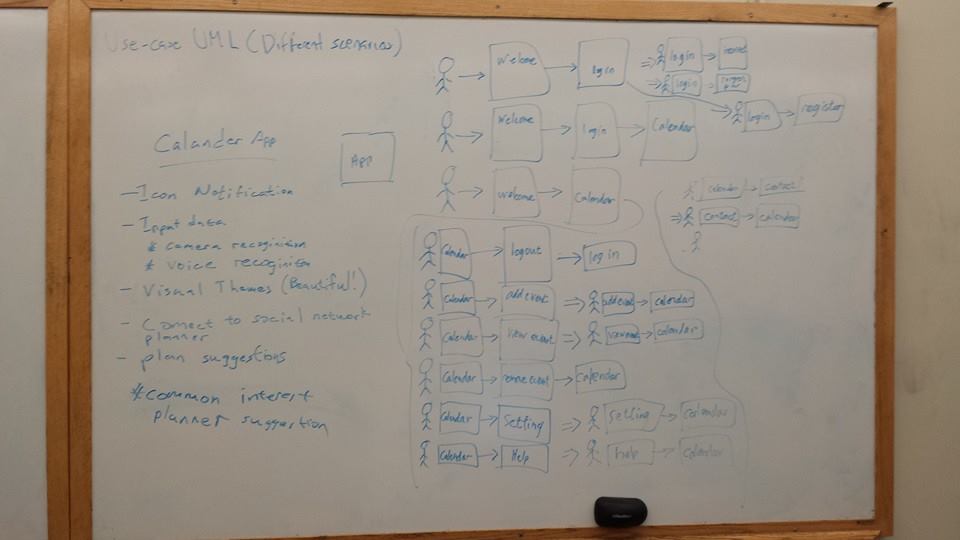 Use-case UML (Different scenarios)
Calander App
App
- Icon Notification
- Input data
* camera recoginition
* voice recoginition
- Visual Themes (Beautiful!)
- Connect to social network
planner
- plan suggestions
* common interest
planner suggestion
welcome login
login
login
login register
welcome login Calendar
welcome Calendar
calendar contact
contact calendar
Calendar logout login
Calendar add event add event calendar
Calendar view event view event calendar
Calendar remove event calendar
Calendar Setting setting calendar
Calendar Help help calendar